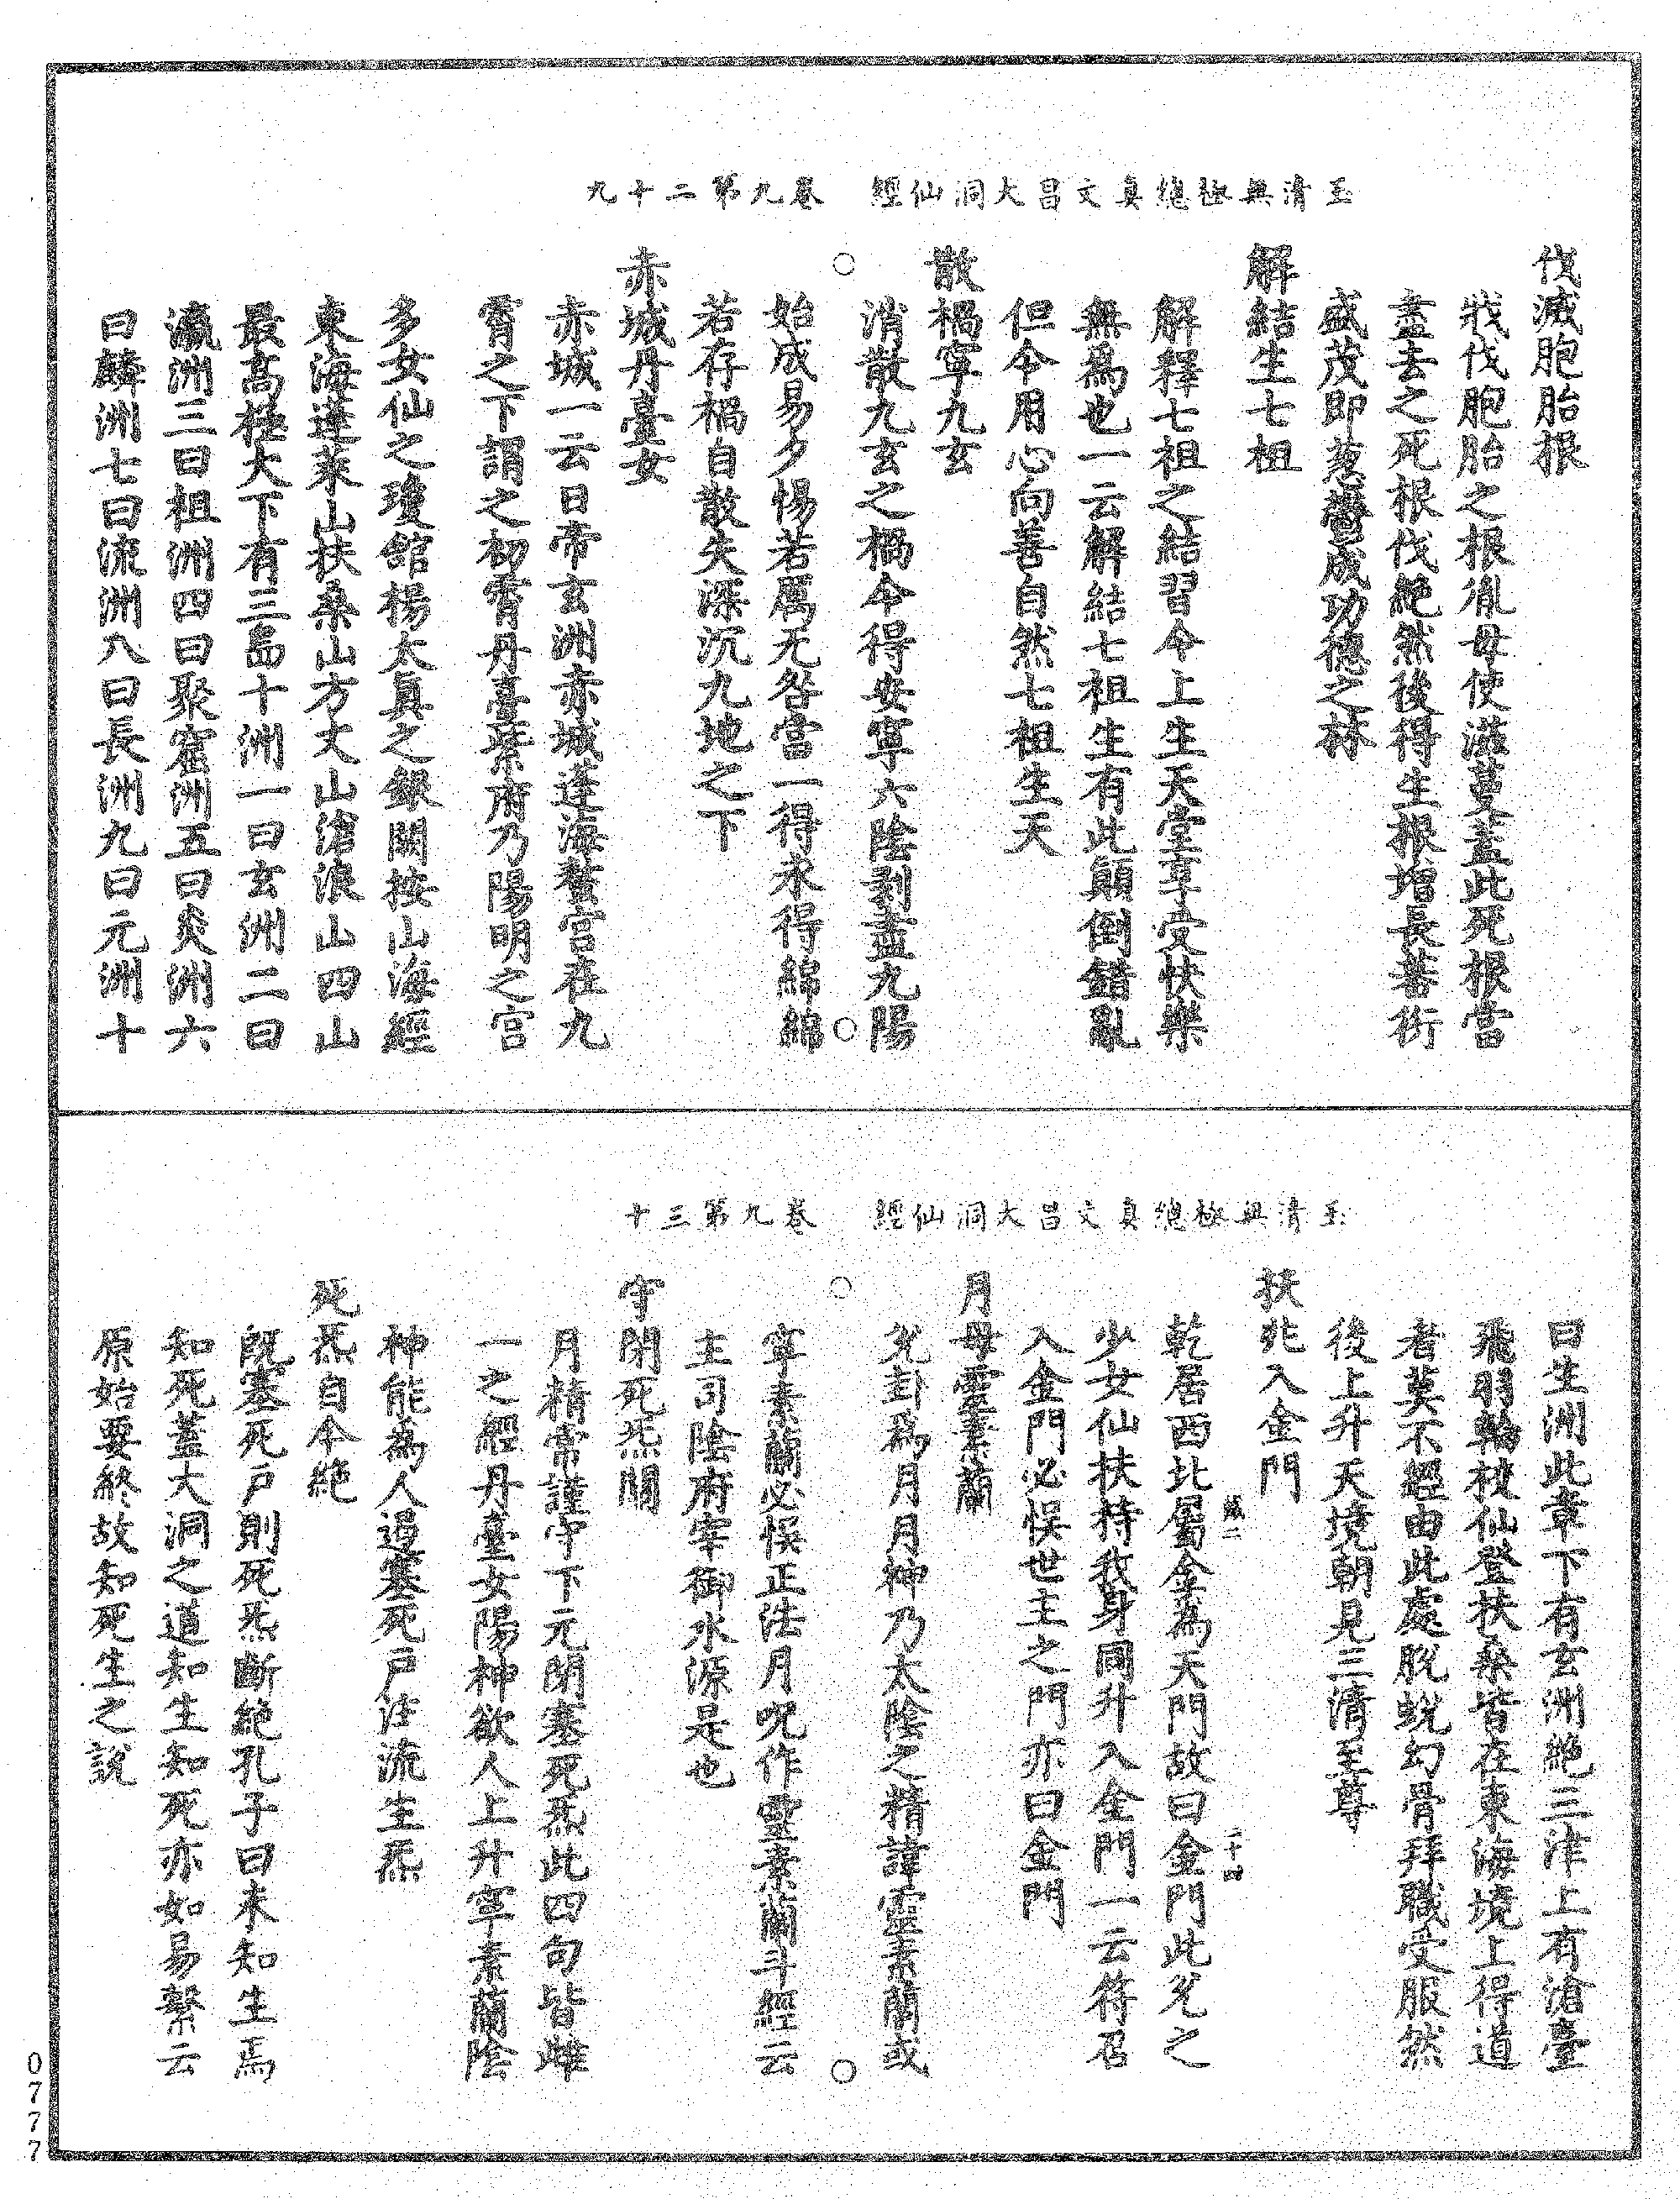 玉清無極總真文昌大洞仙經　卷九第二十九
伐滅胞胎根
戕伐胞胎之根胤毋使滋蔓蓋此死根當
盡去之死根伐絕然後得生根增長菩術
盛茂即慈鬱成功德之林
解結生七祖
解釋七祖之結習今上生天堂享受快樂
無為也一云解結七祖生有此顛倒錯亂
但今用心向善自然七祖生天
散禍寧九玄
消散九玄之禍令得安寧六陰剥盡九陽
始成易夕惕若厲无咎當一得永得綿綿
若存禍自散失深沉九地之下
赤城丹臺女
赤城一云日帝玄洲赤城蓬海鰲宮在九
霄之下謂之初霄丹臺紫府乃陽明之宮
多女仙之瓊館楊太真之銀闕按山海經
東海蓬萊山扶桑山方丈山滄浪山四山
最高極大下有三島十洲一曰玄洲二曰
瀛洲三曰祖洲四曰聚窟洲五曰炎洲六
曰麟洲七曰流洲八曰長洲九曰元洲十
玉清無極總真文昌大洞仙經　卷九第三十
曰生洲此章下有玄洲絕三津上有滄臺
飛羽輪披仙登扶桑皆在東海境上得道
者莫不經由此處脫蛻幻骨拜職受服然
後上升天境朝見三清至尊
扶兆入金門
乾居西北屬金為天門故曰金門此兌之
少女仙扶持我身同升入金門一云符召
入金門必悮世主之門亦曰金門
月母靈素蘭
兌卦為月月神乃太陰之精諱靈素蘭或
寧素蘭必悮正法月呪作靈素蘭斗經云
主司陰府宰御水源是也
守閉死炁關
月精常謹守下元閉塞死炁此四句皆雌
一之經丹臺女陽神欲人上升寧素蘭陰
神能為人遏塞死戶注流生炁
死炁自今絕
既塞死戶則死炁斷絕孔子曰未知生焉
知死蓋大洞之道知生知死亦如易繫云
原始要終故知死生之說
二十四
0777